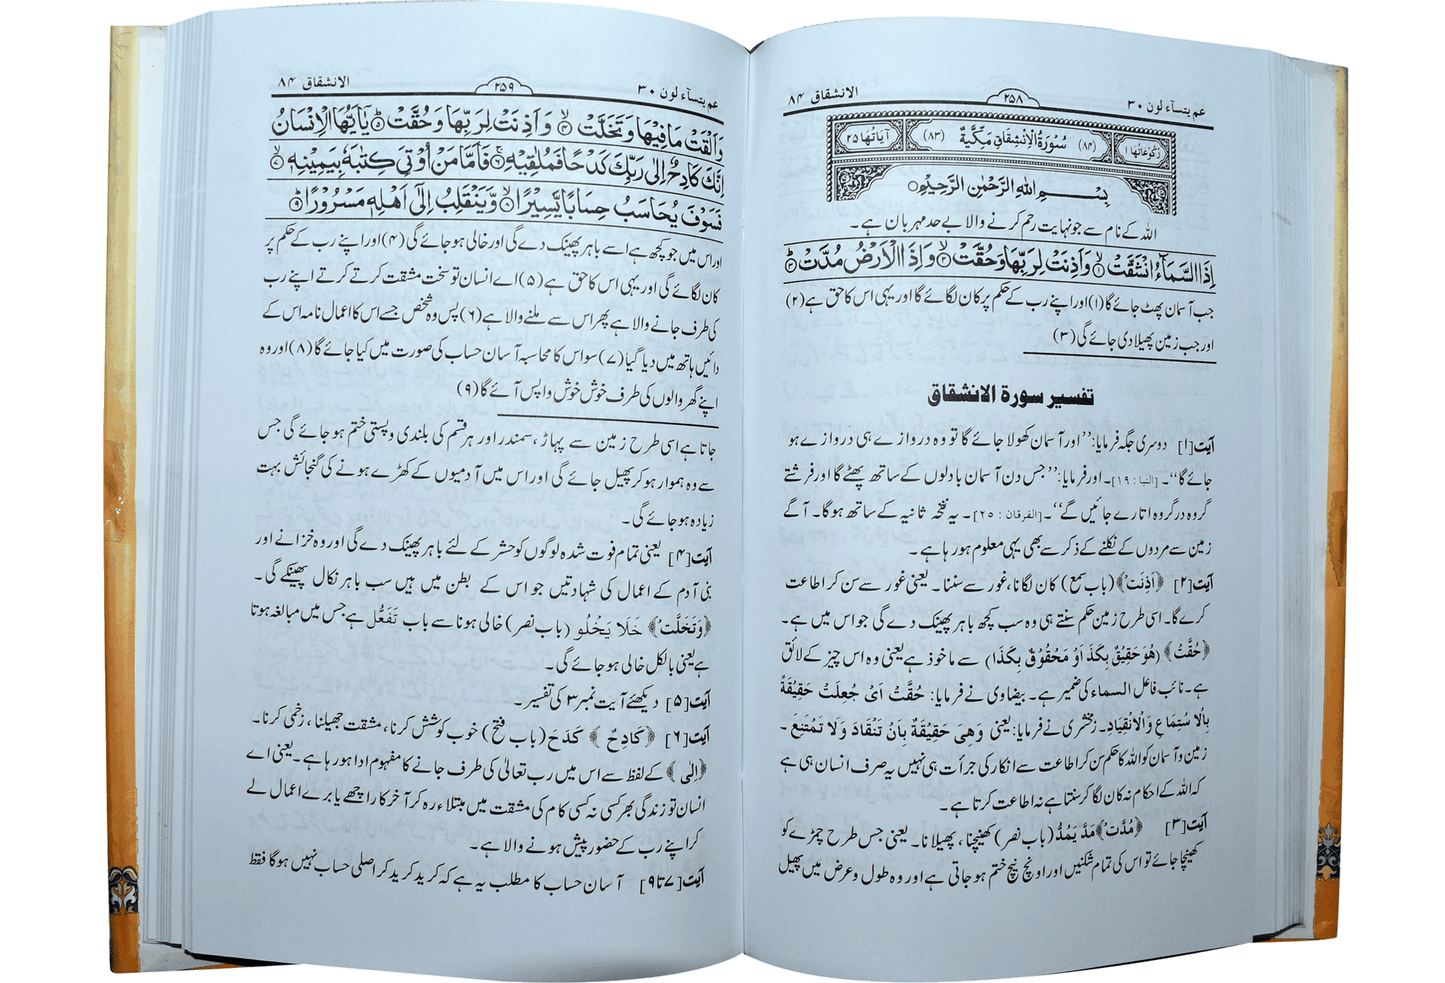 عم یتسآء لون ۳۰
۲۵۸
الانشقاق ۸۴
رُكُوْعَاتُهَا ۱
(۸۴) سُوْرَةُ الْاِنْشِقَاقِ مَكِّيَّةٌ (۸۳)
اٰيَاتُهَا ۲۵
بِسْمِ اللّٰهِ الرَّحْمٰنِ الرَّحِيْمِ
اللہ کے نام سے جو نہایت رحم کرنے والا بے حد مہربان ہے ۔
اِذَا السَّمَآءُ انْشَقَّتْ ۙ۱ وَاَذِنَتْ لِرَبِّهَا وَحُقَّتْ ۙ۲ وَاِذَا الْاَرْضُ مُدَّتْ ۙ۳
جب آسمان پھٹ جائے گا (۱) اور اپنے رب کے حکم پر کان لگائے گا اور یہی اس کا حق ہے (۲)
اور جب زمین پھیلا دی جائے گی (۳)
تفسیر سورۃ الانشقاق
آیت[۱] دوسری جگہ فرمایا: ’’اور آسمان کھولا جائے گا تو وہ دروازے ہی دروازے ہو
جائے گا‘‘۔ [النبا : ۱۹]۔ اور فرمایا: ’’جس دن آسمان بادلوں کے ساتھ پھٹے گا اور فرشتے
گروہ در گروہ اتارے جائیں گے‘‘۔ [الفرقان : ۲۵]۔ یہ نفخہ ثانیہ کے ساتھ ہوگا۔ آگے
زمین سے مردوں کے نکلنے کے ذکر سے بھی یہی معلوم ہو رہا ہے ۔
آیت[۲] ﴿اَذِنَتْ﴾ (باب سمع) کان لگانا، غور سے سننا ۔ یعنی غور سے سن کر اطاعت
کرے گا۔ اسی طرح زمین حکم سنتے ہی وہ سب کچھ باہر پھینک دے گی جو اس میں ہے ۔
﴿حُقَّتْ﴾ (هُوَ حَقِيْقٌ بِكَذَا اَوْ مَحْقُوْقٌ بِكَذَا) سے ماخوذ ہے یعنی وہ اس چیز کے لائق
ہے ۔ نائب فاعل السماء کی ضمیر ہے ۔ بیضاوی نے فرمایا: حُقَّتْ اَیْ جُعِلَتْ حَقِيْقَةً
بِالْاِسْتِمَاعِ وَالْاِنْقِيَادِ۔ زمخشری نے فرمایا: یعنی وَهِيَ حَقِيْقَةٌ بِاَنْ تَنْقَادَ وَلَا تَمْتَنِعَ ۔
زمین و آسمان کو اللہ کا حکم سن کر اطاعت سے انکار کی جرأت ہی نہیں یہ صرف انسان ہی ہے
کہ اللہ کے احکام نہ کان لگا کر سنتا ہے نہ اطاعت کرتا ہے ۔
آیت[۳] ﴿مُدَّتْ﴾ مَدَّ يَمُدُّ (باب نصر) کھینچنا، پھیلانا ۔ یعنی جس طرح چمڑے کو
کھینچا جائے تو اس کی تمام شکنیں اور اونچ نیچ ختم ہو جاتی ہے اور وہ طول و عرض میں پھیل
عم یتسآء لون ۳۰
۲۵۹
الانشقاق ۸۴
وَاَلْقَتْ مَا فِيْهَا وَتَخَلَّتْ ۙ۴ وَاَذِنَتْ لِرَبِّهَا وَحُقَّتْ ؕ۵ يٰۤاَيُّهَا الْاِنْسَانُ
اِنَّكَ كَادِحٌ اِلٰى رَبِّكَ كَدْحًا فَمُلٰقِيْهِ ۚ۶ فَاَمَّا مَنْ اُوْتِيَ كِتٰبَهٗ بِيَمِيْنِهٖ ۙ۷
فَسَوْفَ يُحَاسَبُ حِسَابًا يَّسِيْرًا ۙ۸ وَّيَنْقَلِبُ اِلٰۤى اَهْلِهٖ مَسْرُوْرًا ؕ۹
اور اس میں جو کچھ ہے اسے باہر پھینک دے گی اور خالی ہو جائے گی (۴) اور اپنے رب کے حکم پر
کان لگائے گی اور یہی اس کا حق ہے (۵) اے انسان تو سخت مشقت کرتے کرتے اپنے رب
کی طرف جانے والا ہے پھر اس سے ملنے والا ہے (۶) پس وہ شخص جسے اس کا اعمال نامہ اس کے
دائیں ہاتھ میں دیا گیا (۷) سو اس کا محاسبہ آسان حساب کی صورت میں کیا جائے گا (۸) اور وہ
اپنے گھر والوں کی طرف خوش خوش واپس آئے گا (۹)
جاتا ہے اسی طرح زمین سے پہاڑ ، سمندر اور ہر قسم کی بلندی و پستی ختم ہو جائے گی جس
سے وہ ہموار ہو کر پھیل جائے گی اور اس میں آدمیوں کے کھڑے ہونے کی گنجائش بہت
زیادہ ہو جائے گی ۔
آیت[۴] یعنی تمام فوت شدہ لوگوں کو حشر کے لئے باہر پھینک دے گی اور وہ خزانے اور
بنی آدم کے اعمال کی شہادتیں جو اس کے بطن میں ہیں سب باہر نکال پھینکے گی ۔
﴿وَتَخَلَّتْ﴾ خَلَا يَخْلُو (باب نصر) خالی ہونا سے باب تَفَعُّل ہے جس میں مبالغہ ہوتا
ہے یعنی بالکل خالی ہو جائے گی ۔
آیت[۵] دیکھئے آیت نمبر ۳ کی تفسیر ۔
آیت[۶] ﴿كَادِحٌ﴾ كَدَحَ (باب فتح) خوب کوشش کرنا، مشقت جھیلنا ، زخمی کرنا ۔
﴿اِلٰى﴾ کے لفظ سے اس میں رب تعالیٰ کی طرف جانے کا مفہوم ادا ہو رہا ہے ۔ یعنی اے
انسان تو زندگی بھر کسی نہ کسی کام کی مشقت میں مبتلاء رہ کر آخر کار اچھے یا برے اعمال لے
کر اپنے رب کے حضور پیش ہونے والا ہے ۔
آیت[۷تا۹] آسان حساب کا مطلب یہ ہے کہ کرید کرید کر اصلی حساب نہیں ہوگا فقط